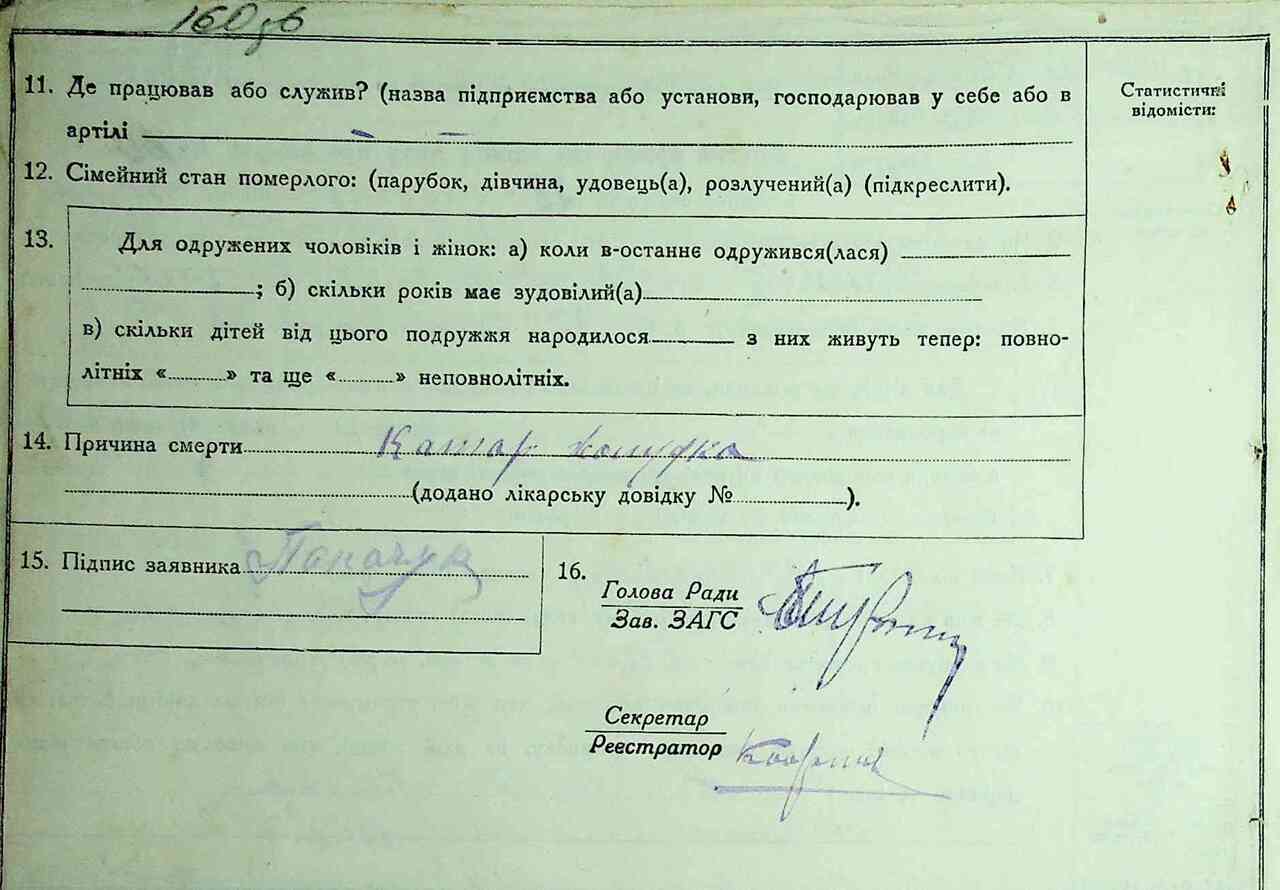 160зв
11. Де працював або служив? (назва підприємства або установи, господарював у себе або в
артілі
12. Сімейний стан померлого: (парубок, дівчина, удовець(а), розлучений(а) (підкреслити).
13. Для одружених чоловіків і жінок: а) коли в-останнє одружився(лася)
; б) скільки років має зудовілий(а)
в) скільки дітей від цього подружжя народилося з них живуть тепер: повно-
літніх «» та ще «» неповнолітніх.
14. Причина смерти Катар желудка
(додано лікарську довідку №).
15. Підпис заявника
16.
Голова Ради
Зав. ЗАГС
Секретар
Реєстратор
Статистичні
відомісти: